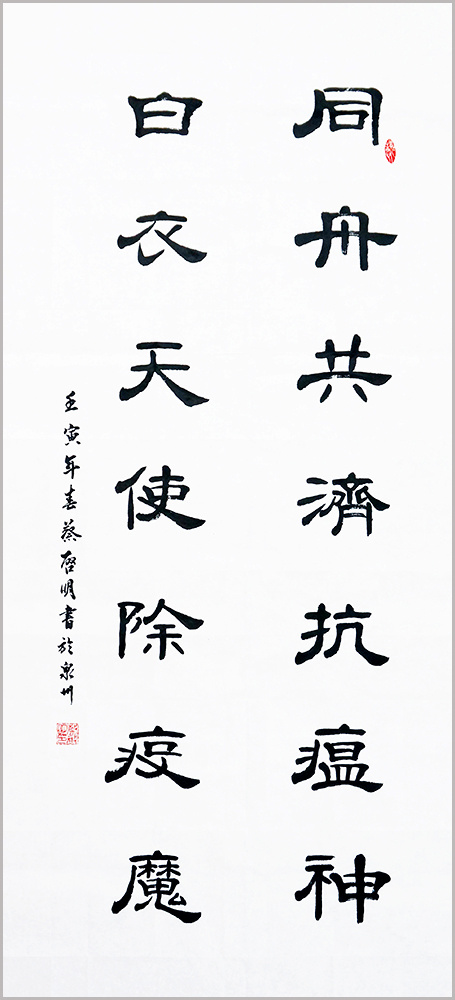 同舟共濟抗瘟神
白衣天使除疫魔
壬寅年春蔡啓明書於泉州